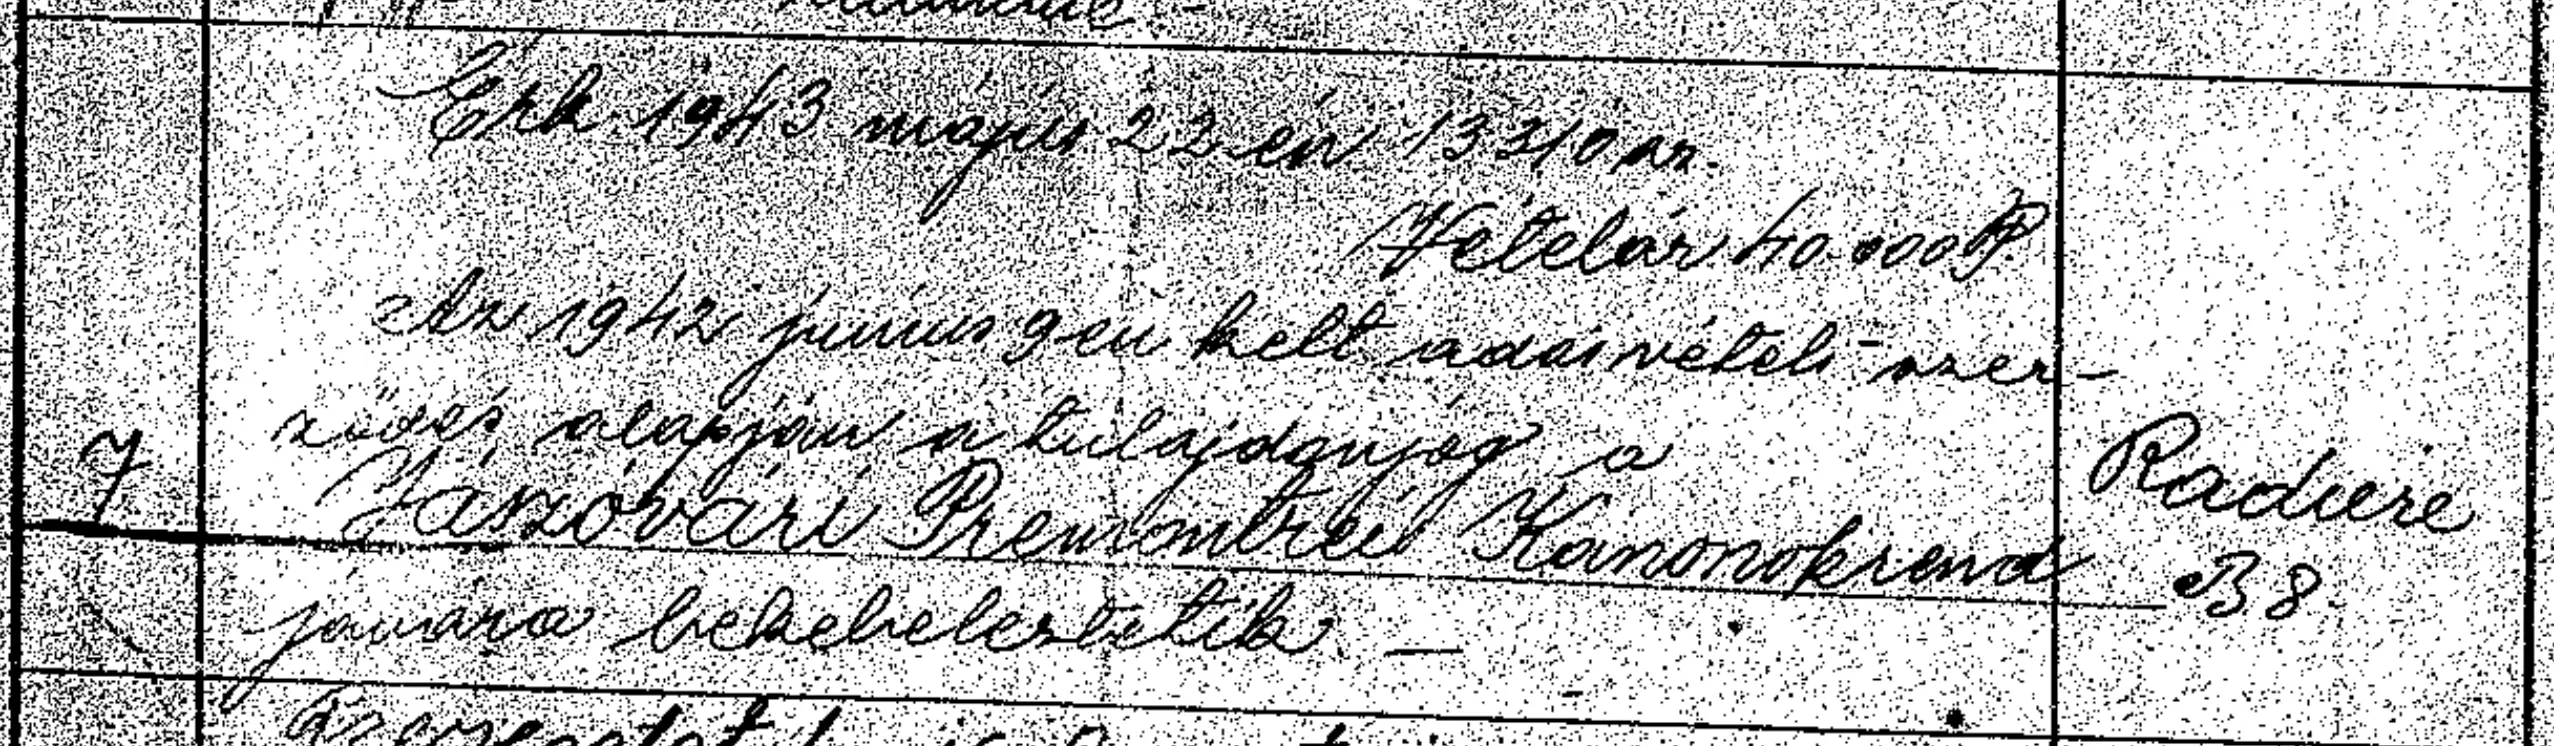 Érk. 1943 május 22 én 13310 sz.
Vételár 40.000 P.
Az 1942 junius 9 én kelt adásvételi szer-
ződés alapján a tulajdonjog a
7 Jászóvári Premontrei Kanonokrend Radiere
javára bekebeleztetik. — B 8